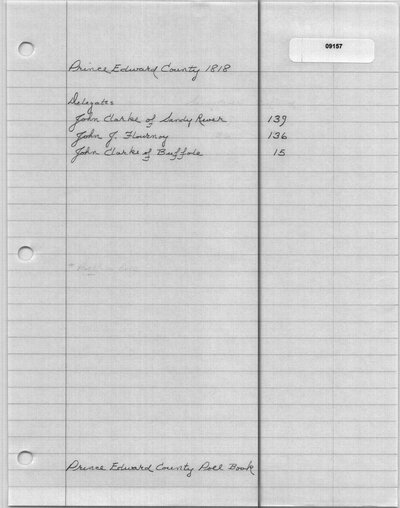 09157
Prince Edward County 1818
Delegates
John Clarke of Sandy River 139
John J. Flournoy 136
John Clarke of Buffalo 15
Prince Edward County Poll Book